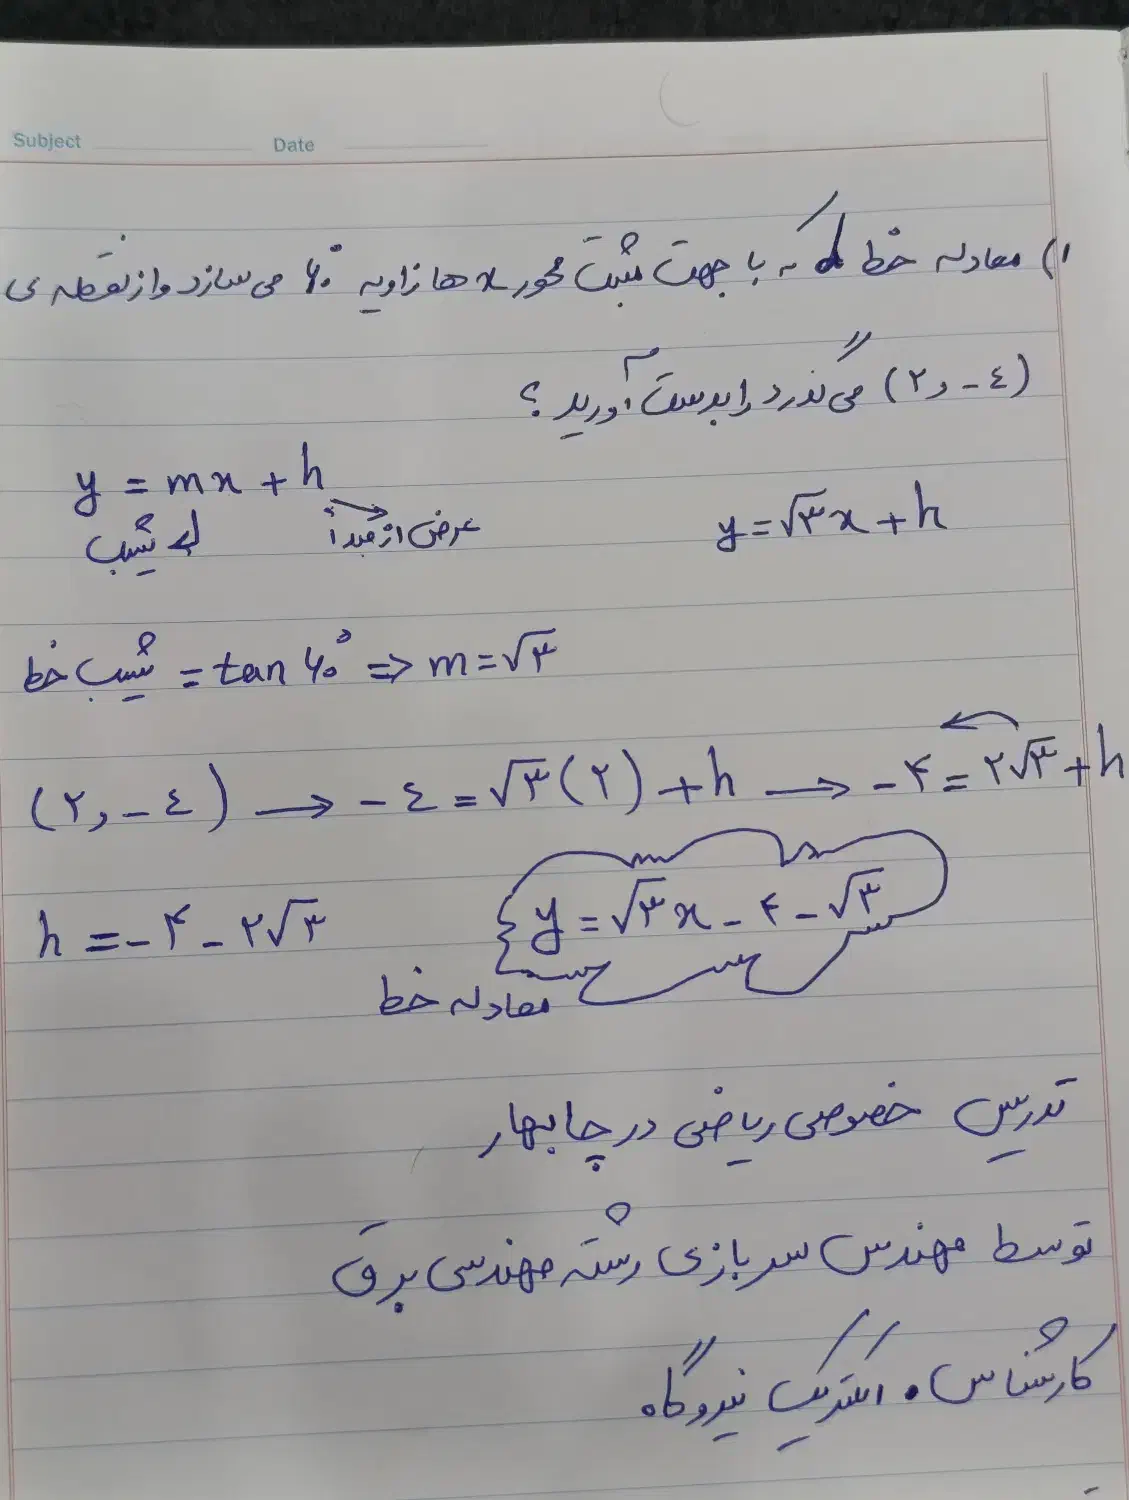 Subject Date
۱) معادله خط d که با جهت مثبت محور x ها زاویه ۶۰° می سازد و از نقطه ی
(۲, -٤) می گذرد را بدست آورید ؟
y = mx + h
شیب
عرض از مبدأ
y = √۳x + h
شیب خط = tan ۶۰° => m = √۳
(۲, -٤) → -٤ = √۳(۲) + h → -۴ = ۲√۳ + h
h = -۴ - ۲√۳
y = √۳x - ۴ - √۳
معادله خط
تدریس خصوصی ریاضی در چابهار
توسط مهندس سربازی رشته مهندسی برق
کارشناس الکتریک نیروگاه